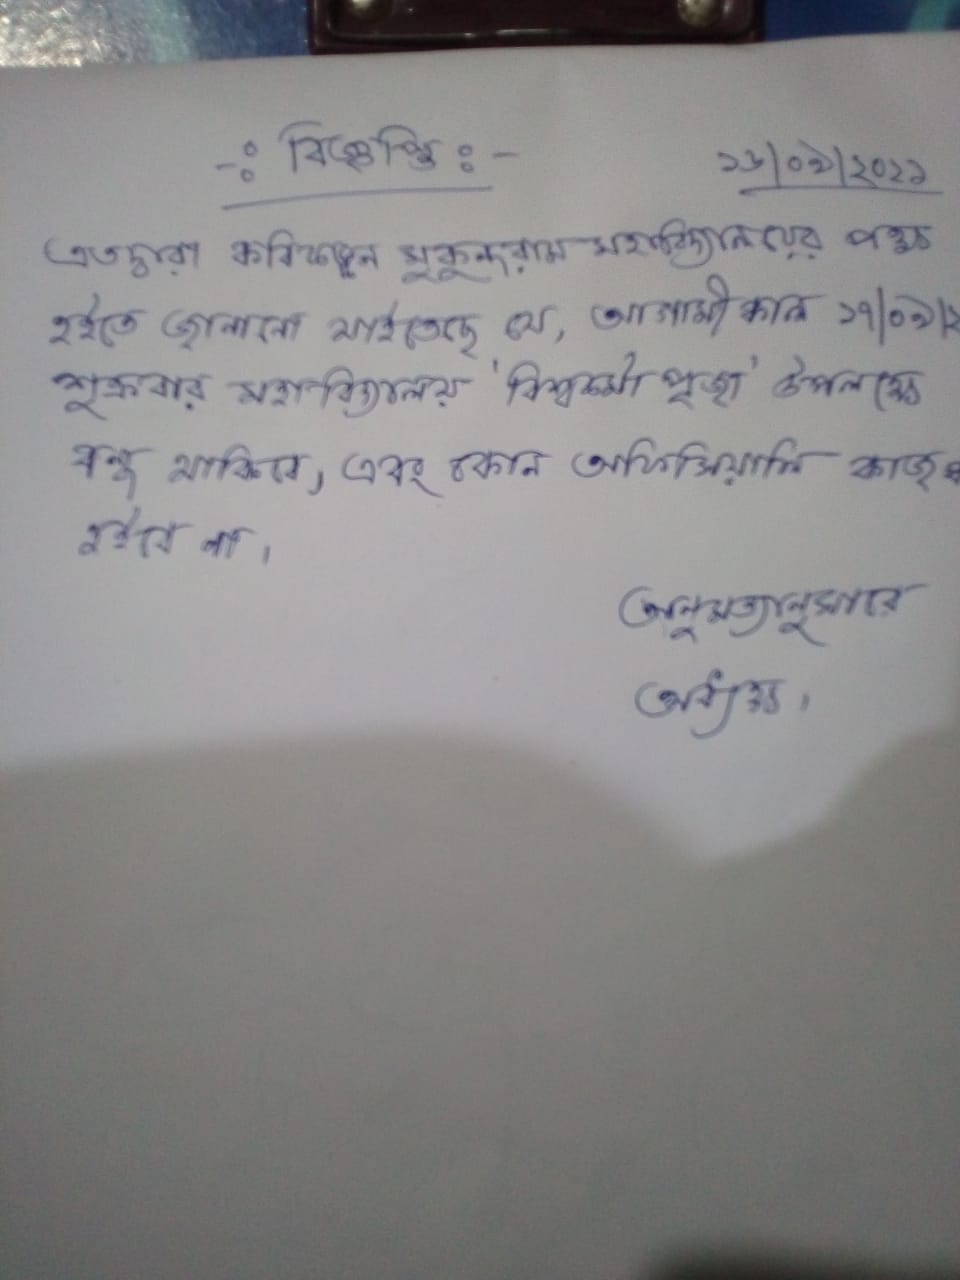 -ঃ বিজ্ঞপ্তি ঃ-
১৬/০৯/২০২১
এতদ্বারা কবিকঙ্কন মুকুন্দরাম মহাবিদ্যালয়ের পক্ষ
হইতে জানানো যাইতেছে যে, আগামীকাল ১৭/০৯/২
শুক্রবার মহাবিদ্যালয় 'বিশ্বকর্মা পূজা' উপলক্ষে
বন্ধ থাকিবে, এবং কোন অফিসিয়াল কাজ
হইবে না।
অনুমত্যানুসারে
অধ্যক্ষ।